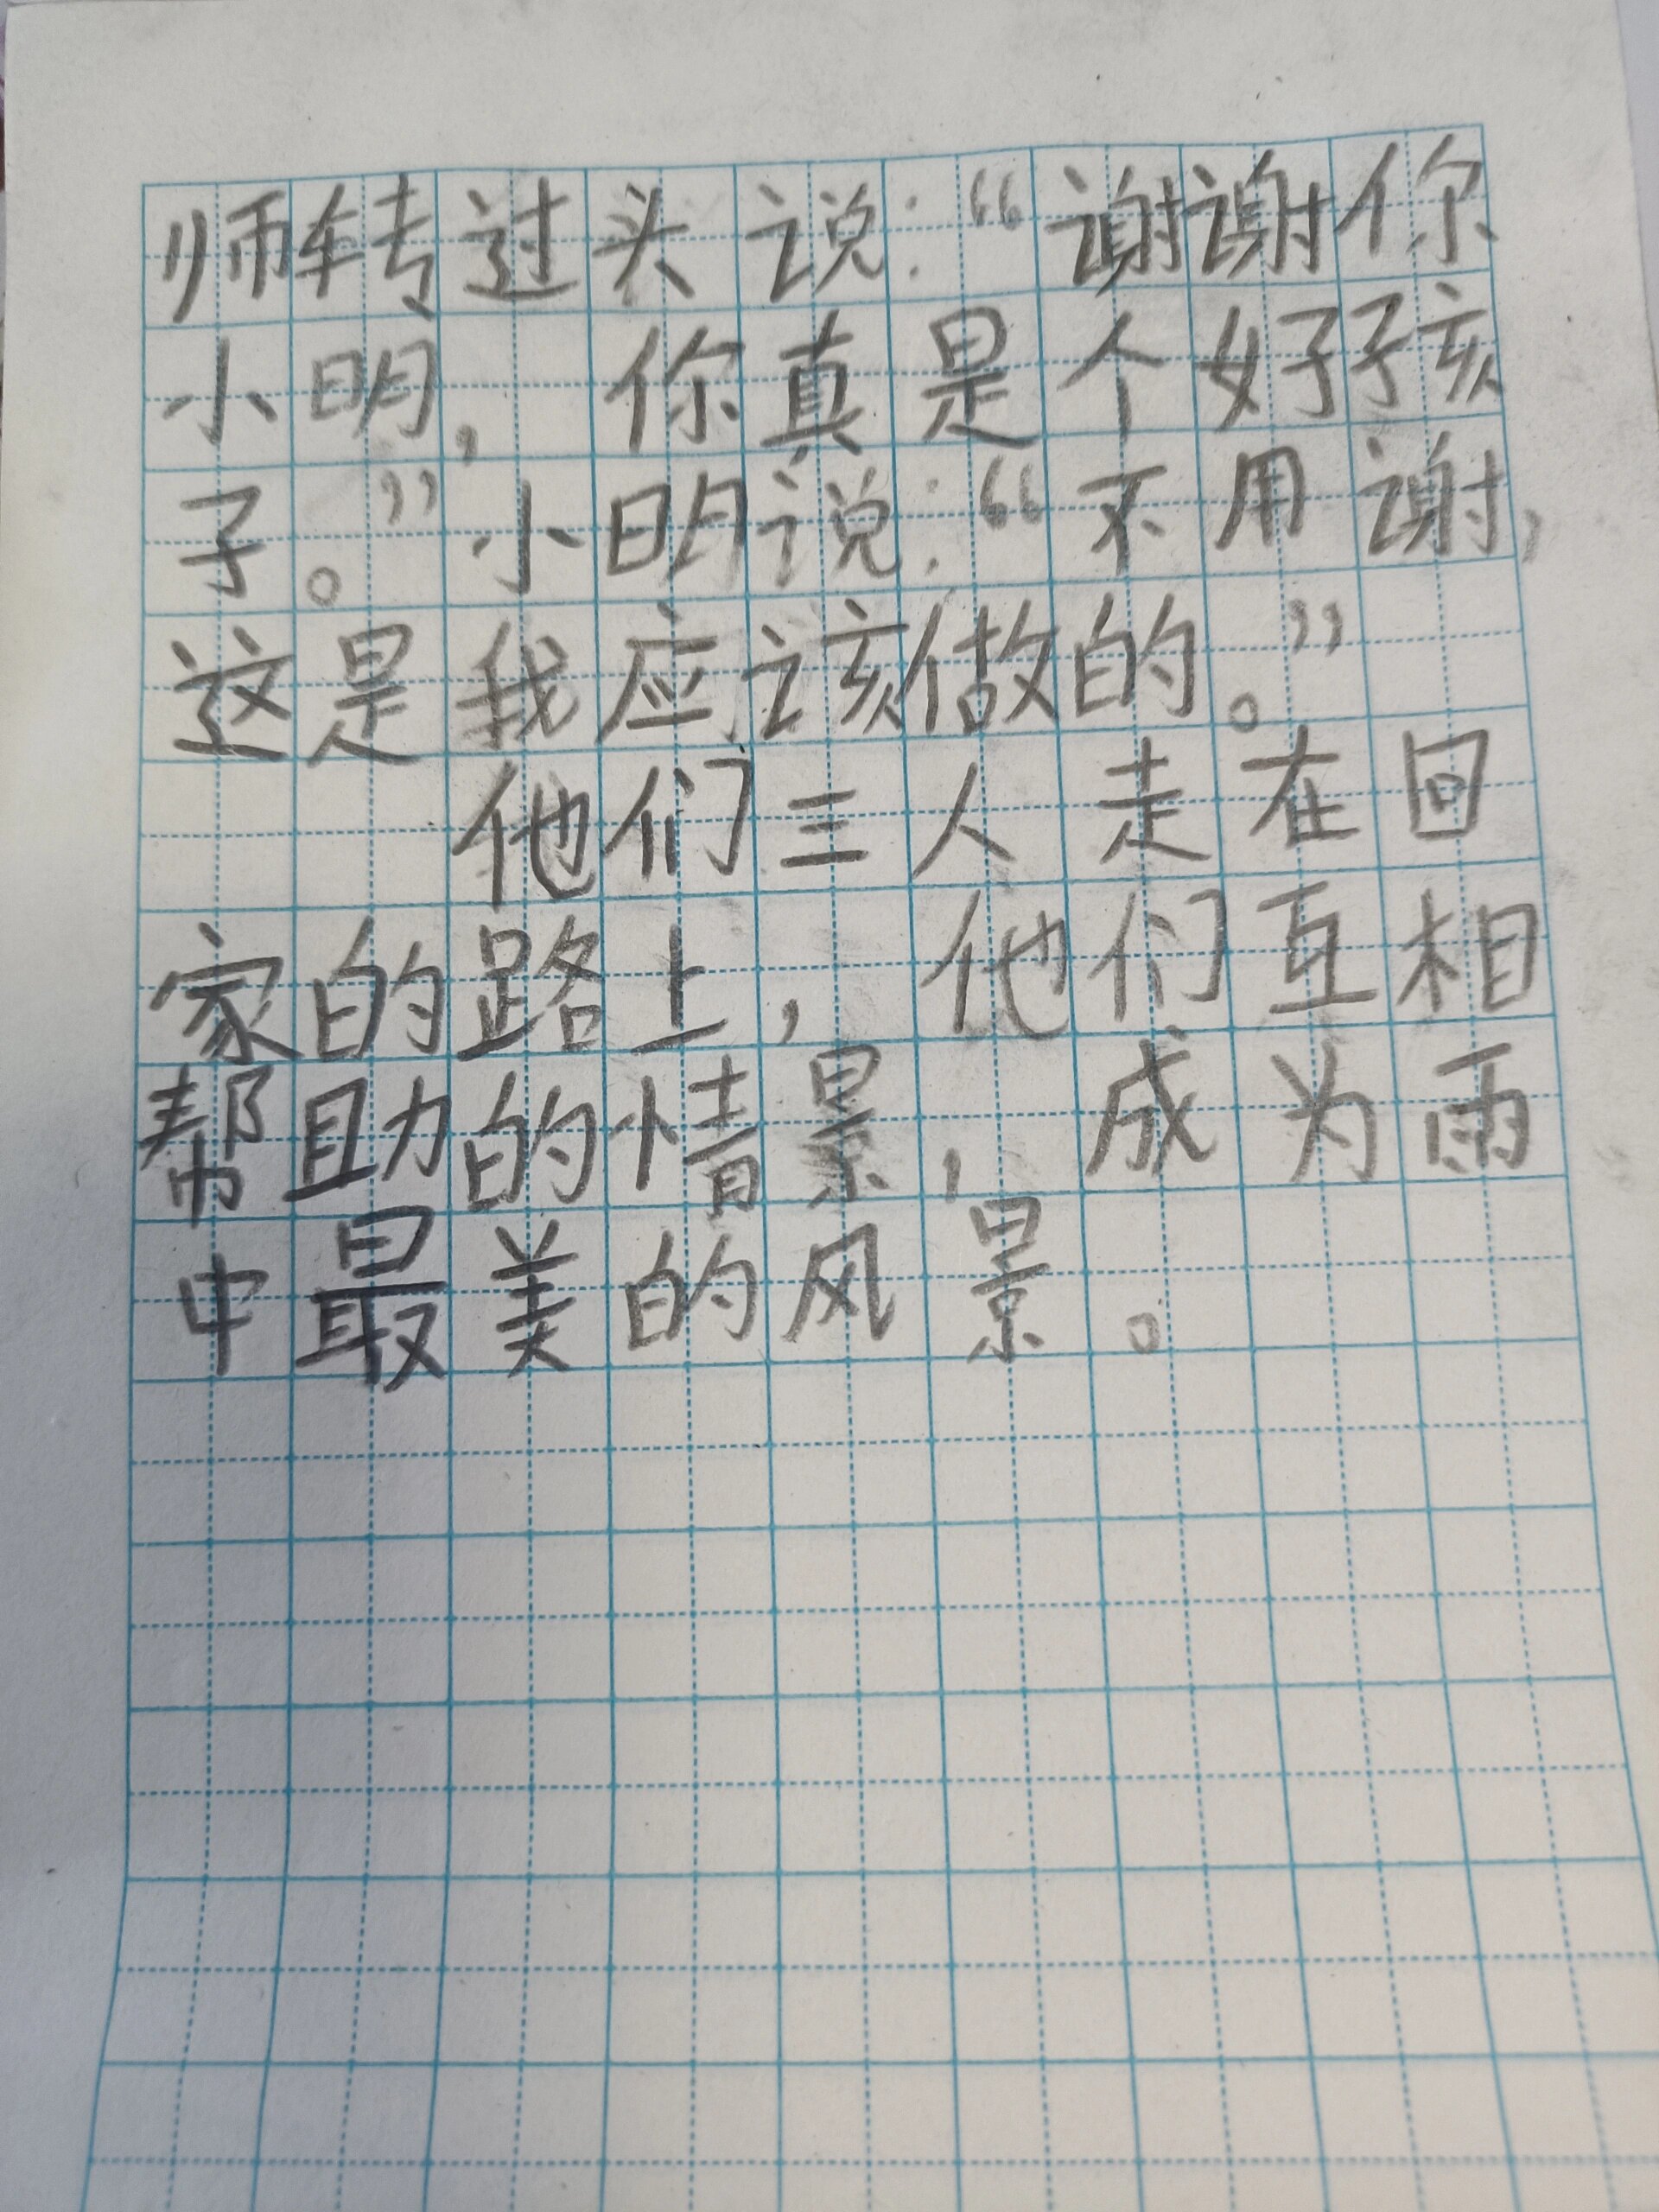 师转过头说：“谢谢你
小明，你真是个好孩
子。”小明说：“不用谢，
这是我应该做的。”
他们三人走在回
家的路上，他们互相
帮助的情景，成为雨
中最美的风景。